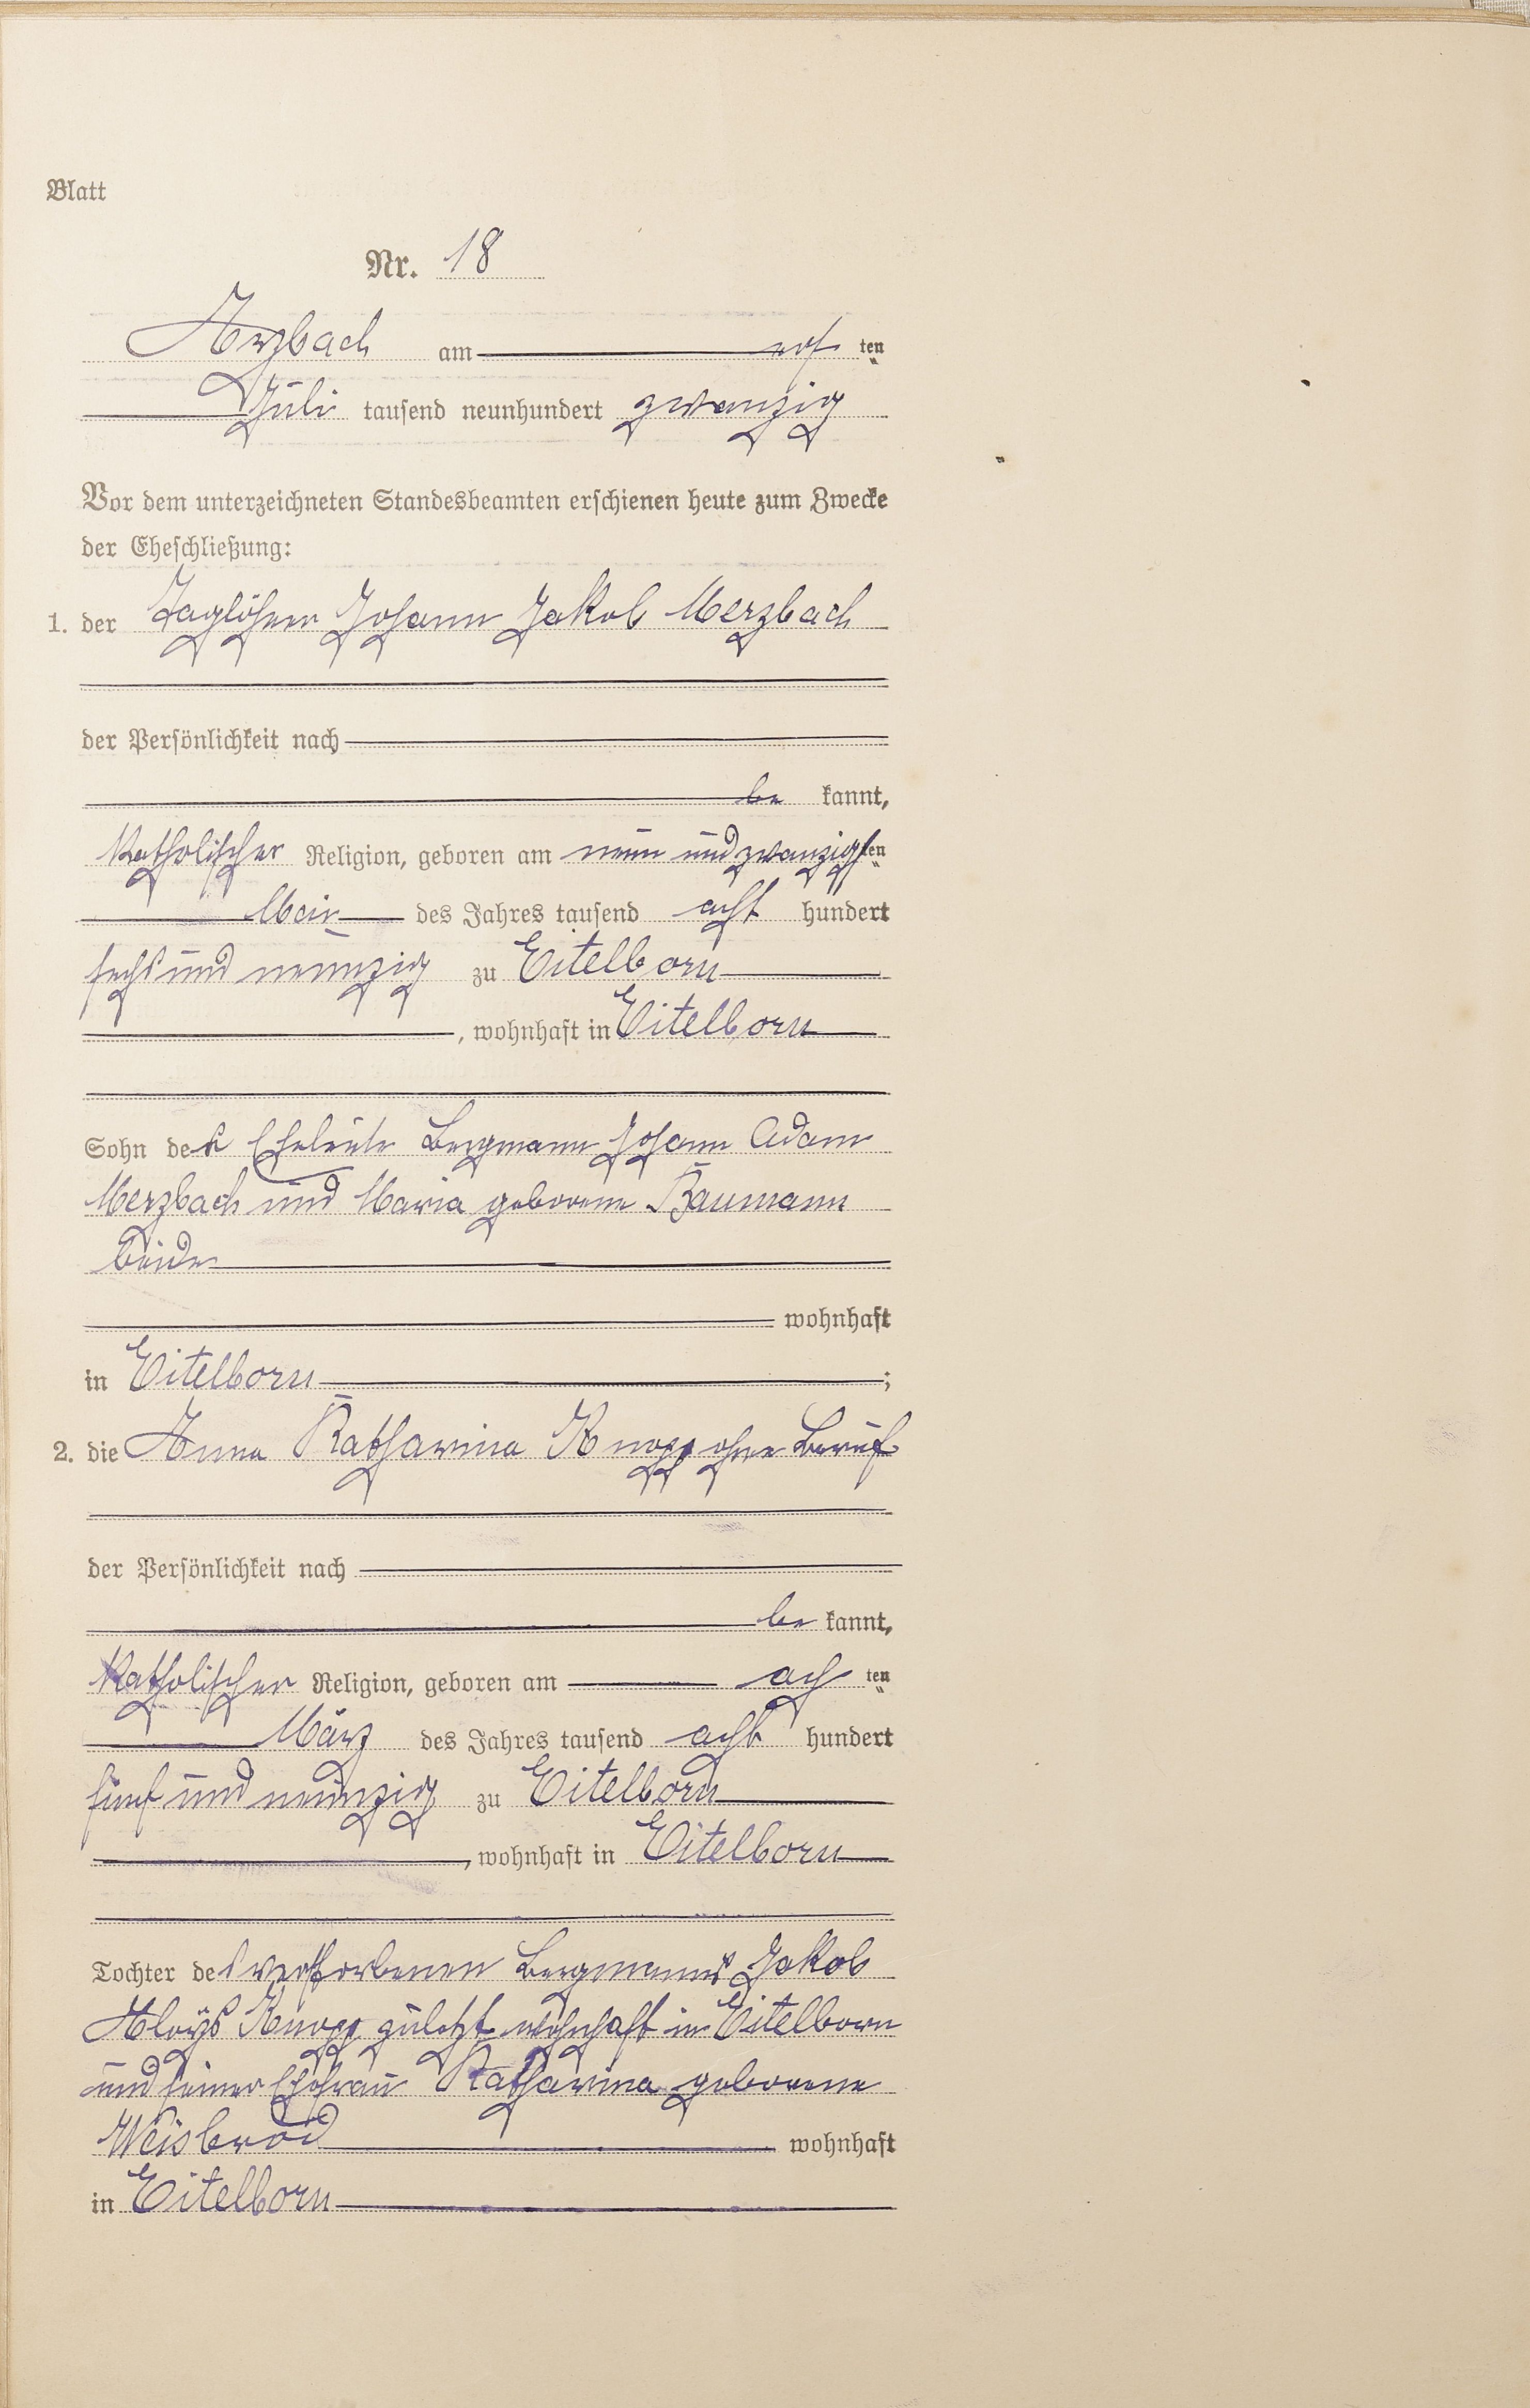 Blatt
Nr. 18
Arzbach am erſ ten
Juli tauſend neunhundert zwanzig
Vor dem unterzeichneten Standesbeamten erſchienen heute zum Zwecke
der Eheſchließung:
1. der Taglöhner Johann Jakob Merzbach
der Perſönlichkeit nach
be kannt,
katholiſcher Religion, geboren am neun und zwanzigſ ten
Mai des Jahres tauſend acht hundert
ſechs und neunzig zu Eitelborn
, wohnhaft in Eitelborn
Sohn der Eheleute Bergmann Johann Adam
Merzbach und Maria geborene Baumann
beide
wohnhaft
in Eitelborn ;
2. die Anna Katharina Knopp ohne Beruf
der Perſönlichkeit nach
be kannt,
katholiſcher Religion, geboren am ach ten
März des Jahres tauſend acht hundert
fünf und neunzig zu Eitelborn
, wohnhaft in Eitelborn
Tochter des verſtorbenen Bergmanns Jakob
Aloys Knopp zuletzt wohnhaft in Eitelborn
und ſeiner Ehefrau Katharina geborene
Weisbrod wohnhaft
in Eitelborn